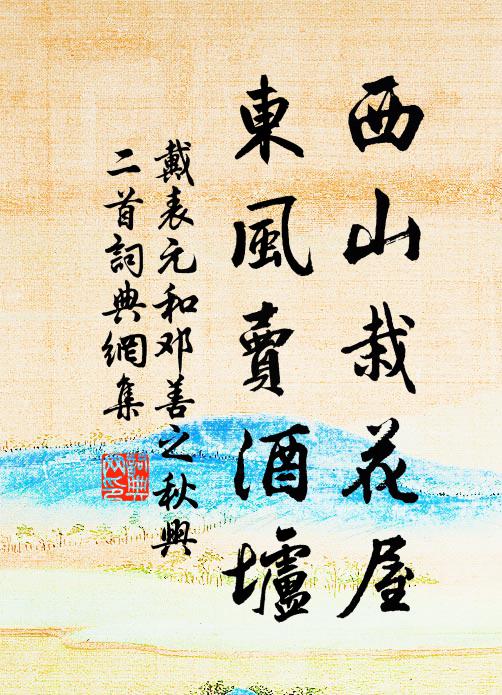 西山栽花屋
東風賣酒壚
戴表元和邓善之秋興
二首詞典網集